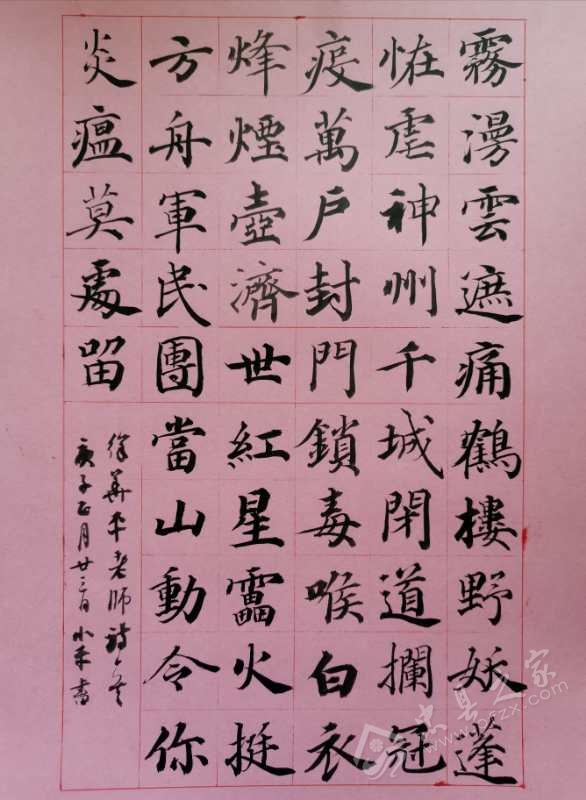 霧漫雲遮痛鶴樓野妖蓬
恠虐神州千城閉道攔冠
疫萬戶封門鎖毒喉白衣
烽煙壺濟世紅星靁火挺
方舟軍民團當山動令你
炎瘟莫處留
徐華平老師詩一首
庚子正月廿三日小書